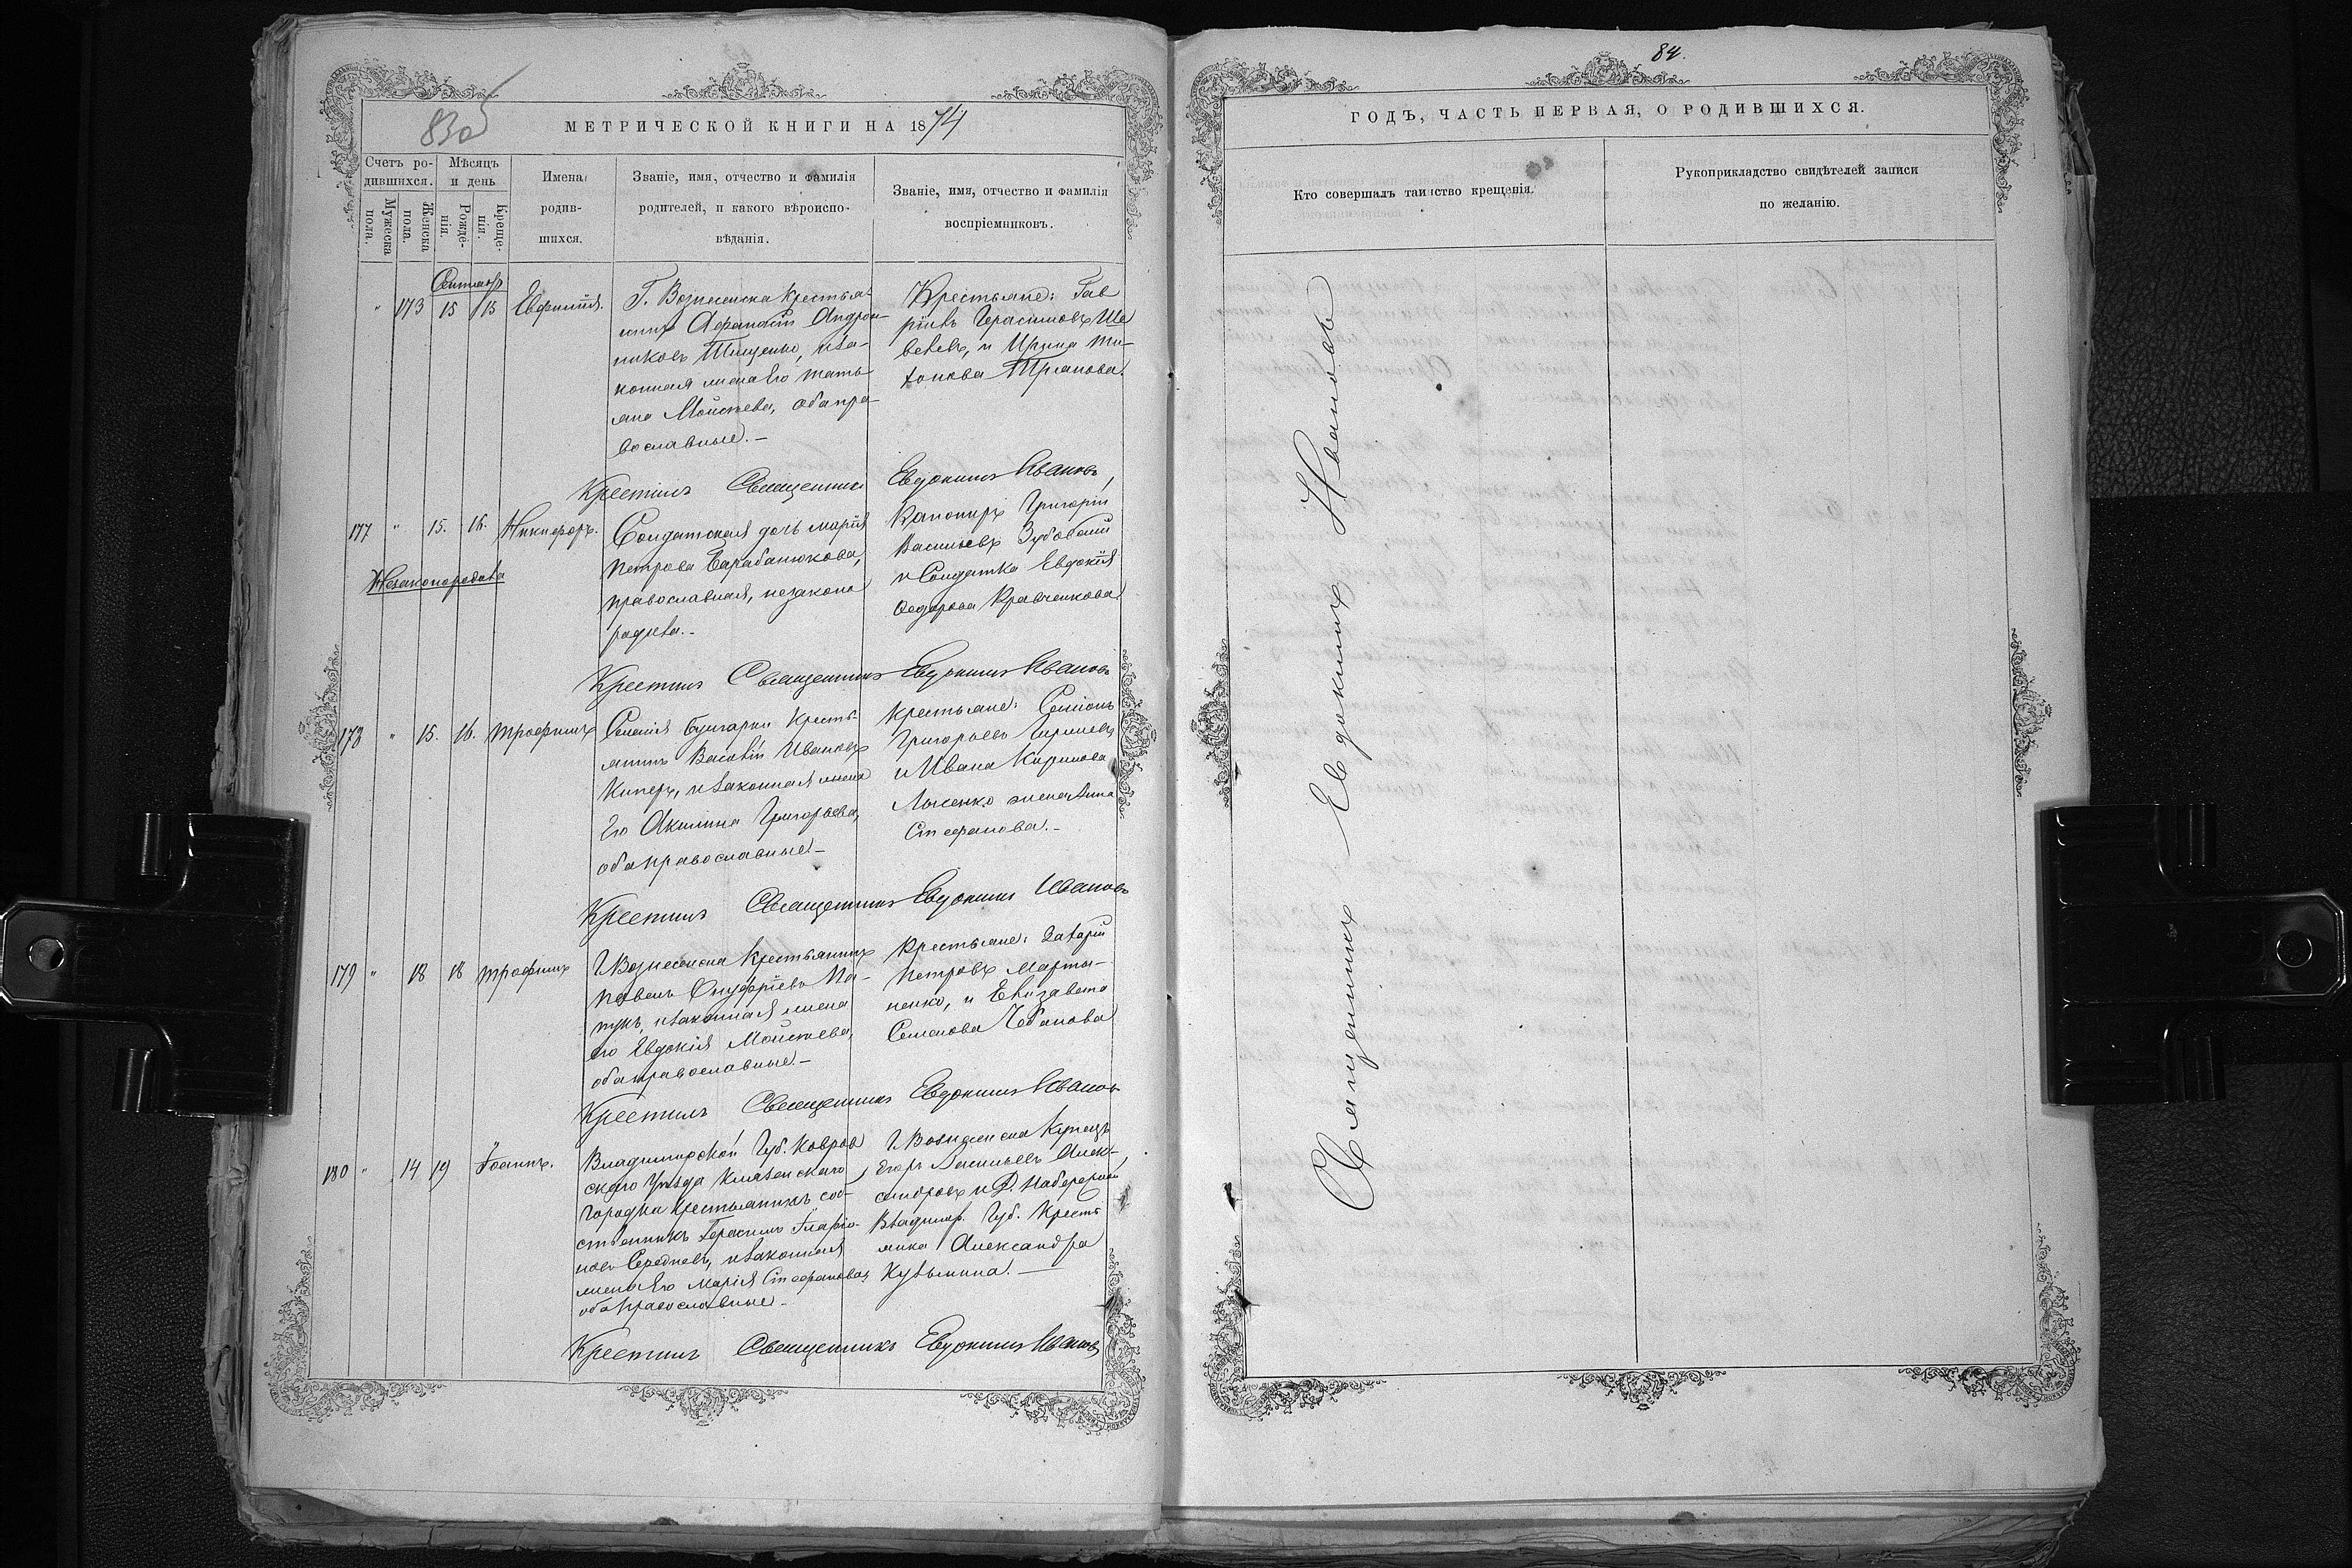 83об
МЕТРИЧЕСКОЙ КНИГИ НА 1874
Счетъ ро-
дившихся.
Мужеска
пола.
Женска
пола.
Мѣсяцъ
и день
Рожде-
нія.
Креще-
нія.
Имена
родив-
шихся.
Званіе, имя, отчество и фамилія
родителей, и какого вѣроиспо-
вѣданія.
Званіе, имя, отчество и фамилія
воспріемниковъ.
" 173 15 15 Евфимія.
Г. Вознесенска крестья-
нинъ Афанасій Андрон-
никовъ Тищенко, и за-
конная жена его Тать-
яна Моисеева, оба пра-
вославные.-
Крестьяне: Гав
ріилъ Герасимовъ
и Ирина Ти-
хонова
Крестилъ Священникъ Евдокимъ Ивановъ
177 " 15. 16. Никифоръ.
Незаконорожд
Солдатская дочь Марія
Петрова Барабанюкова,
православная, незаконо
Канониръ Григорій
Васильевъ
и Солдатка Евдокія
Федорова Кравченкова
Крестилъ Священникъ Евдокимъ Ивановъ
178 " 15. 16. Трофимъ
Селенія Булгарки кресть-
янинъ Василій Ивановъ
Киперъ, и законная жена
его Акилина Григорьева,
оба православные-
Крестьяне: Семіонъ
Григорьевъ
и Ивана Кирилова
жена Анна
Стефанова.-
Крестилъ Священникъ Евдокимъ Ивановъ
179 " 18 18 Трофимъ
Г. Вознесенска крестьянинъ
Павелъ Онуфріевъ Па-
и законная жена
его Евдокія Моисеева,
оба православные.-
Крестьяне: Захарій
Петровъ Марты-
ненко, и Елизавета
Семенова Чебанова
Крестилъ Священникъ Евдокимъ Ивановъ
180 " 14 19 Іоаннъ.
Владимірской Губ. Ковров
скаго Уѣзда Клязенскаго
городка крестьянинъ соб-
ственникъ Герасимъ Иларіо-
новъ Середневъ, и законная
жена его Марія Стефанова,
оба православные-
Г. Вознесенска Купецъ
Егоръ Васильевъ Алек-
сандровъ и Д. Набережной
Владимір. Губ. Кресть
янка Александра
Кузьмина.-
Крестилъ Священникъ Евдокимъ Ивановъ
84.
ГОДЪ, ЧАСТЬ ПЕРВАЯ, О РОДИВШИХСЯ.
Кто совершалъ таинство крещенія.
Рукоприкладство свидѣтелей записи
по желанію.
Священникъ Евдокимъ Ивановъ